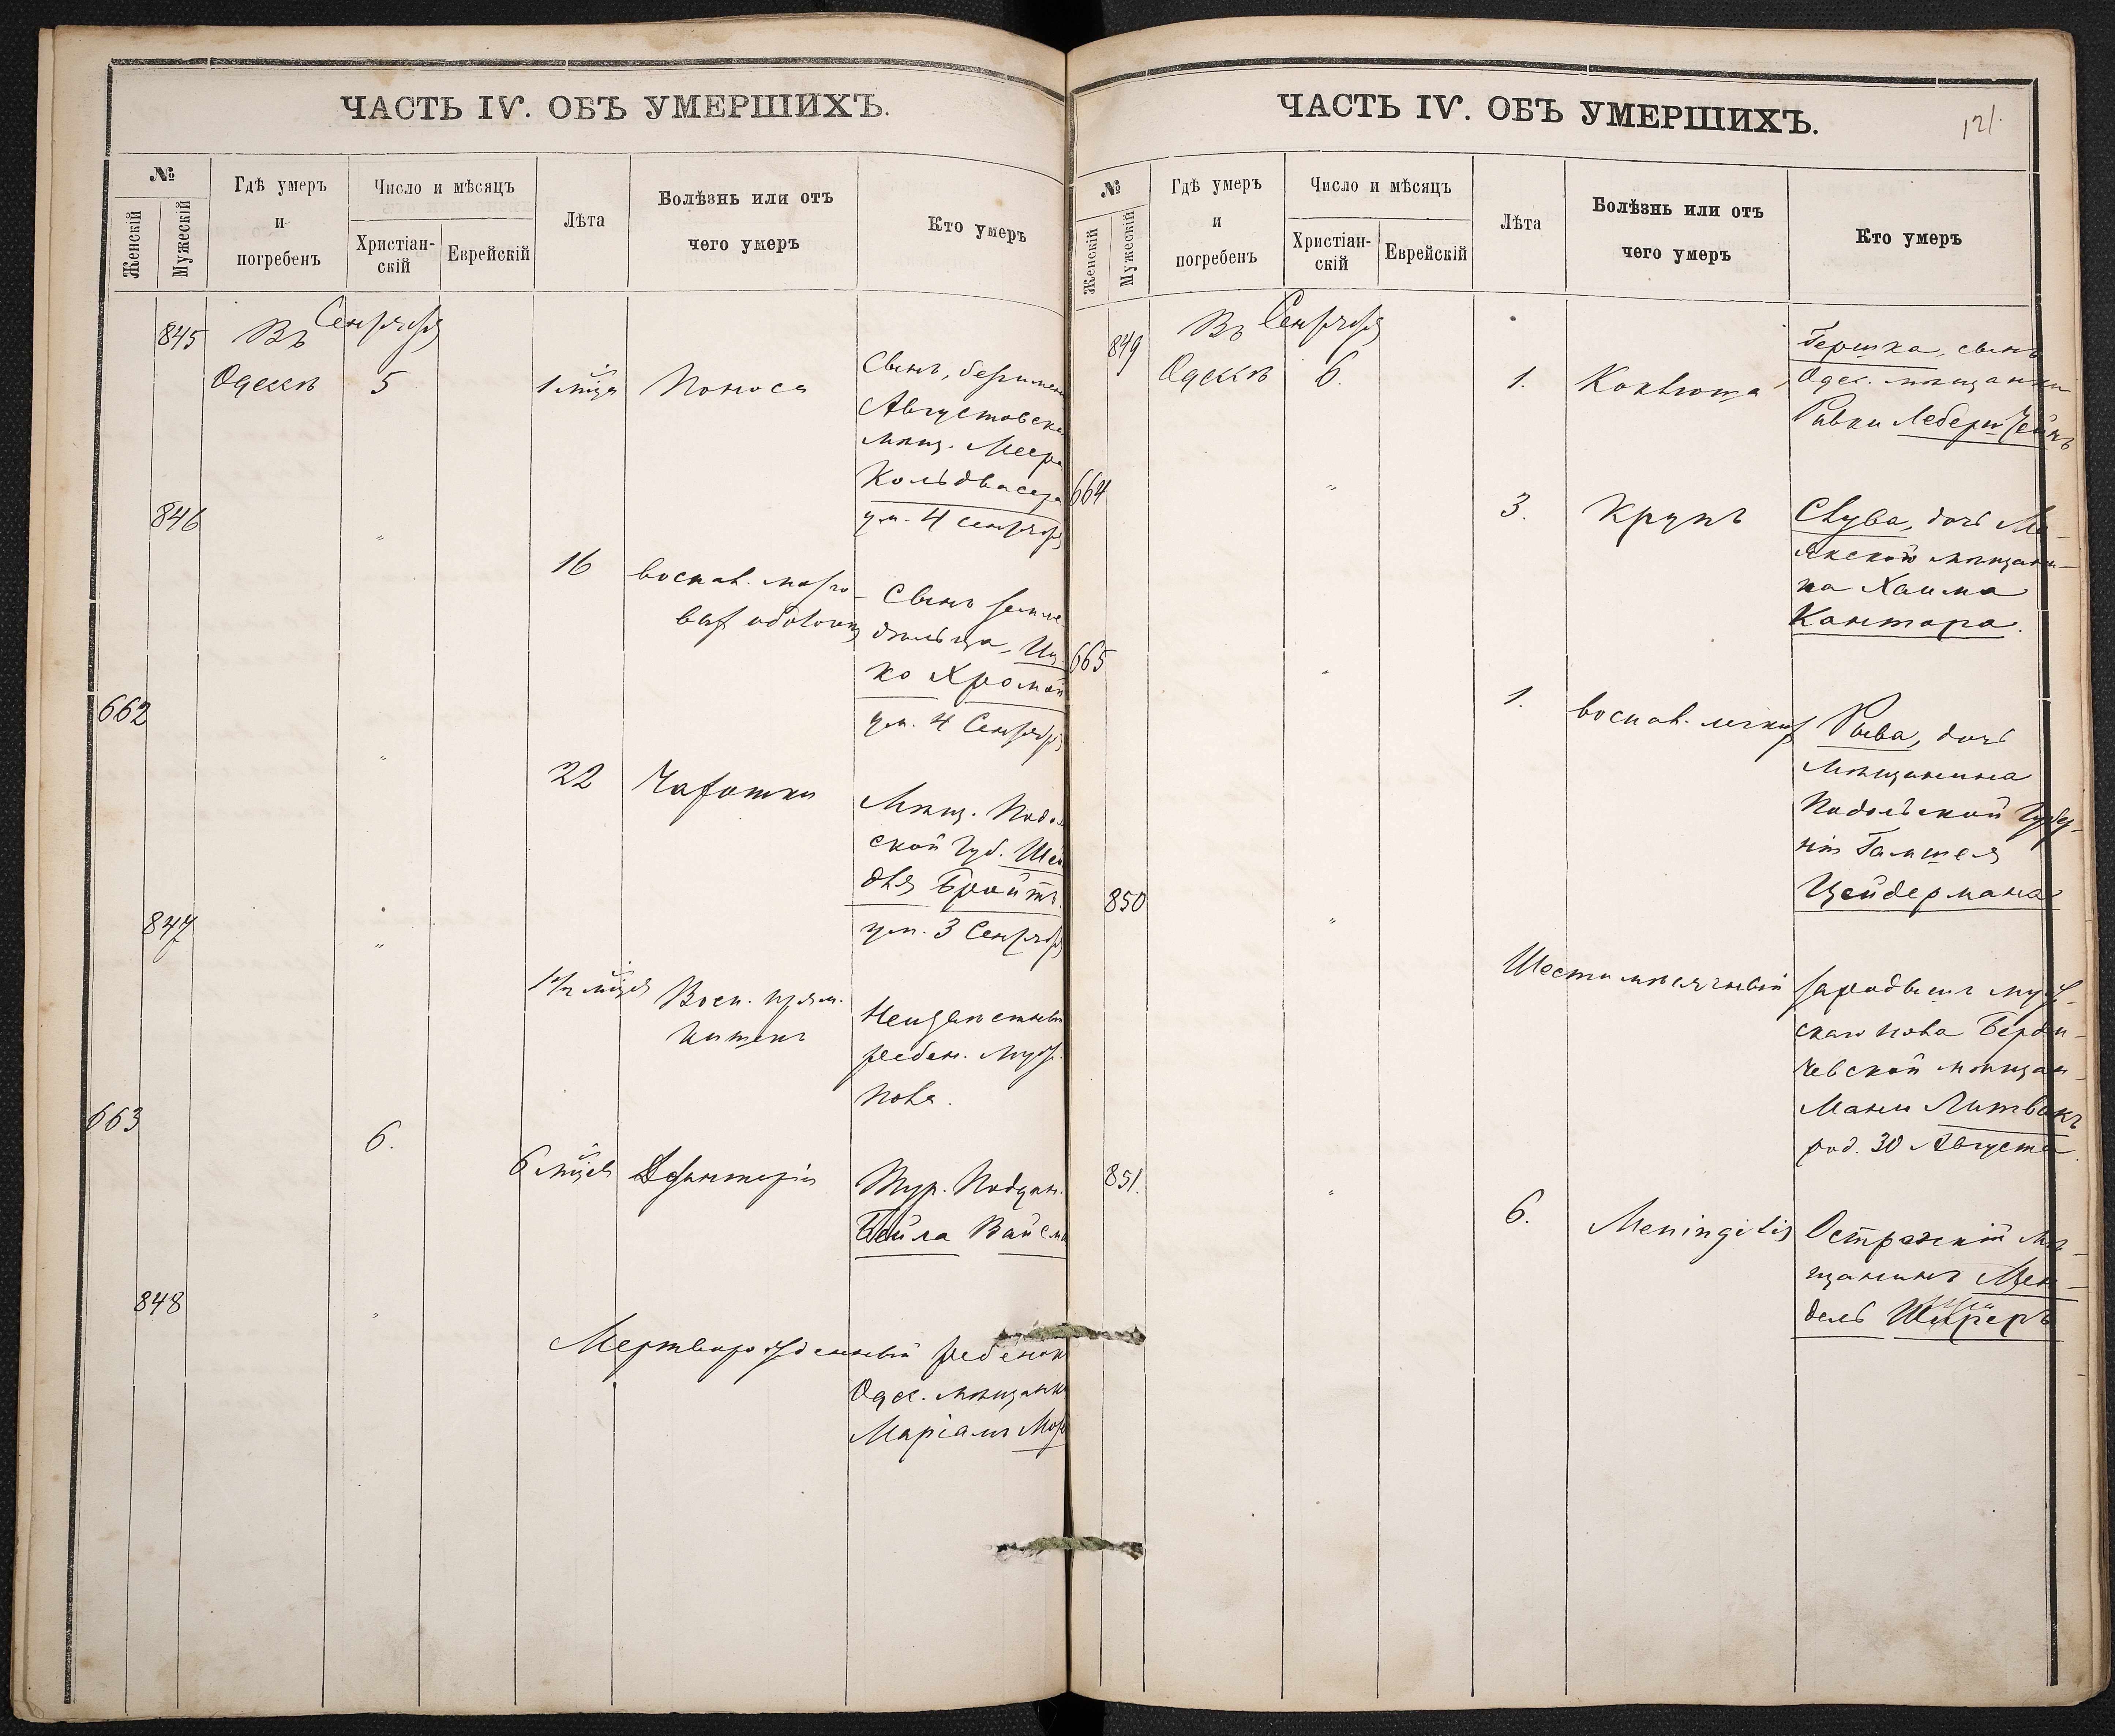 ЧАСТЬ IV. ОБЪ УМЕРШИХЪ.
№
Женскій
Мужескій
Гдѣ умеръ
и
погребенъ
Число и мѣсяцъ
Христіан-
скій
Еврейскій
Лѣта
Болѣзнь или отъ
чего умеръ
Кто умеръ
845 Въ Сентября
Одессѣ 5 1 мѣца Поноса
Сынъ, безимен
Августовска
мѣщ. Меера
Кольдвасера
ум. 4 Сентября
846 " 16 воспал. мозго-
вых оболочекъ
Сынъ земле
дѣльца, Иц
ко Хромой
ум. 4 Сентября
662 " 22 Чахотки
Мѣщ. Подоль
ской Губ. Шей
для Бройтъ
ум. 3 Сентября
847 " 1½ мѣсяц Восп. прям.
кишекъ
Неизвѣстный
ребен. Муж.
пола.
663 6. 6 мѣцев Дизинтеріи
Тур. Поддан.
Бейла Вайсма
848 " Мертворожденный ребенок
Одес. мѣщанки
Маріамъ
ЧАСТЬ IV. ОБЪ УМЕРШИХЪ.
121.
№
Женскій
Мужескій
Гдѣ умеръ
и
погребенъ
Число и мѣсяцъ
Христіан-
скій
Еврейскій
Лѣта
Болѣзнь или отъ
чего умеръ
Кто умеръ
849 Въ Сентября
Одессѣ 6. 1. Коклюша
Гершка, сынъ
Одес. мѣщанки
Ривки
664 " 3. Крупъ
Слува, дочь Ма-
якскою мѣщани-
на Хаима
Кантора.
665 " 1. воспал. легких
Рива, дочь
Мѣщанина
Подольской Губер-
ніи Гамшея
Цейдермана
850 " Шестимѣсячный зародышъ муж-
скаго пола Берди-
чевской мѣщан.
Мани Литвакъ
род. 30 Августа.
851. " 6. Meningitis
Острожскій Мѣ-
щанинъ Мен-
дель